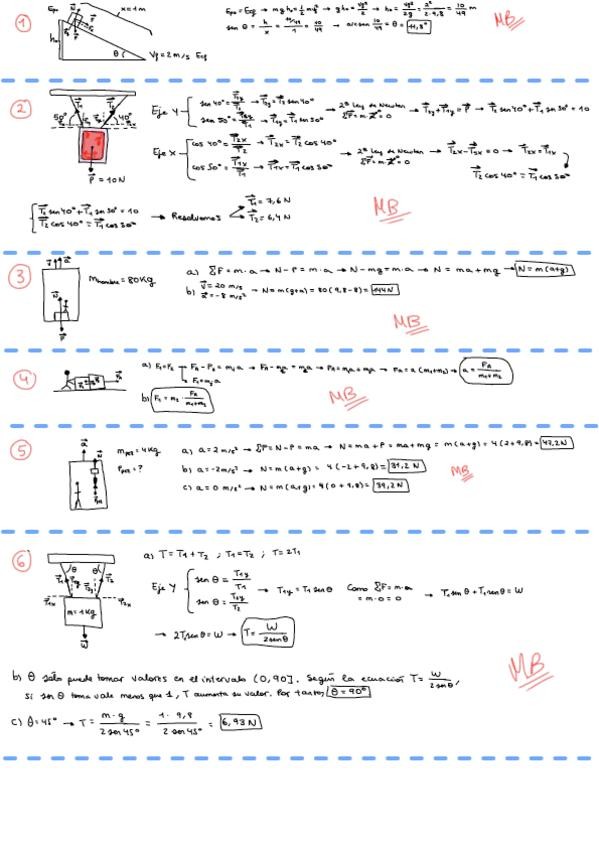 1
Epo
x=1m
N
h₀
θ
Vf=2m/s Ecf
Epo = Ecf → m g h₀ = 1/2 m vf² → g h₀ = vf²/2 → h₀ = vf²/2g = 2²/2·9,8 = 10/49 m
sen θ = h/x = 10/49/1 = 10/49 → arcsen 10/49 = θ = 11,8°
MB
2
50°
40°
P = 10N
Eje Y
sen 40° = T2y/T2 → T2y = T2 sen 40°
sen 50° = T1y/T1 → T1y = T1 sen 50°
→ 2ª Ley de Newton ΣF = m·a = 0 → T2y + T1y = P → T2 sen 40° + T1 sen 50° = 10
Eje X
cos 40° = T2x/T2 → T2x = T2 cos 40°
cos 50° = T1x/T1 → T1x = T1 cos 50°
→ 2ª Ley de Newton ΣF = m·a = 0 → T2x - T1x = 0 → T2x = T1x
T2 cos 40° = T1 cos 50°
T2 sen 40° + T1 sen 50° = 10
T2 cos 40° = T1 cos 50°
→ Resolvemos
T1 = 7,6 N
T2 = 6,4 N
MB
3
m hombre = 80Kg
a) ΣF = m·a → N - P = m·a → N - mg = m·a → N = ma + mg → N = m(a+g)
b) v = 20 m/s
a = -8 m/s² → N = m(g+a) = 80(9,8-8) = 144N
MB
4
a) F1 = F2
FA - F2 = m1a
F1 = m2a
→ FA = m1a + m2a → FA = a(m1+m2) → a = FA/m1+m2
b) F1 = m2 · FA/m1+m2
MB
5
m pez = 4Kg
P pez = ?
a) a = 2m/s² → ΣF = N - P = ma → N = ma + P = ma + mg = m(a+g) = 4(2+9,8) = 47,2N
b) a = -2m/s² → N = m(a+g) = 4(-2+9,8) = 31,2N
c) a = 0 m/s² → N = m(a+g) = 4(0+9,8) = 39,2N
MB
6
θ θ
T1x
T2x
m=1Kg
W
a) T = T1 + T2 ; T1 = T2 ; T = 2T1
Eje Y
sen θ = T1y/T1
sen θ = T2y/T2
→ T1y = T1 senθ
Como ΣF = m·a = m·0 = 0 → T1 senθ + T1 senθ = W
→ 2T1 senθ = W → T = W/2senθ
b) θ sólo puede tomar valores en el intervalo (0,90]. Según la ecuación T = W/2senθ,
si sen θ toma vale menos que 1, T aumenta su valor. Por tanto, θ = 90°
c) θ = 45° → T = m·g/2 sen 45° = 1·9,8/2 sen 45° = 6,93N
MB